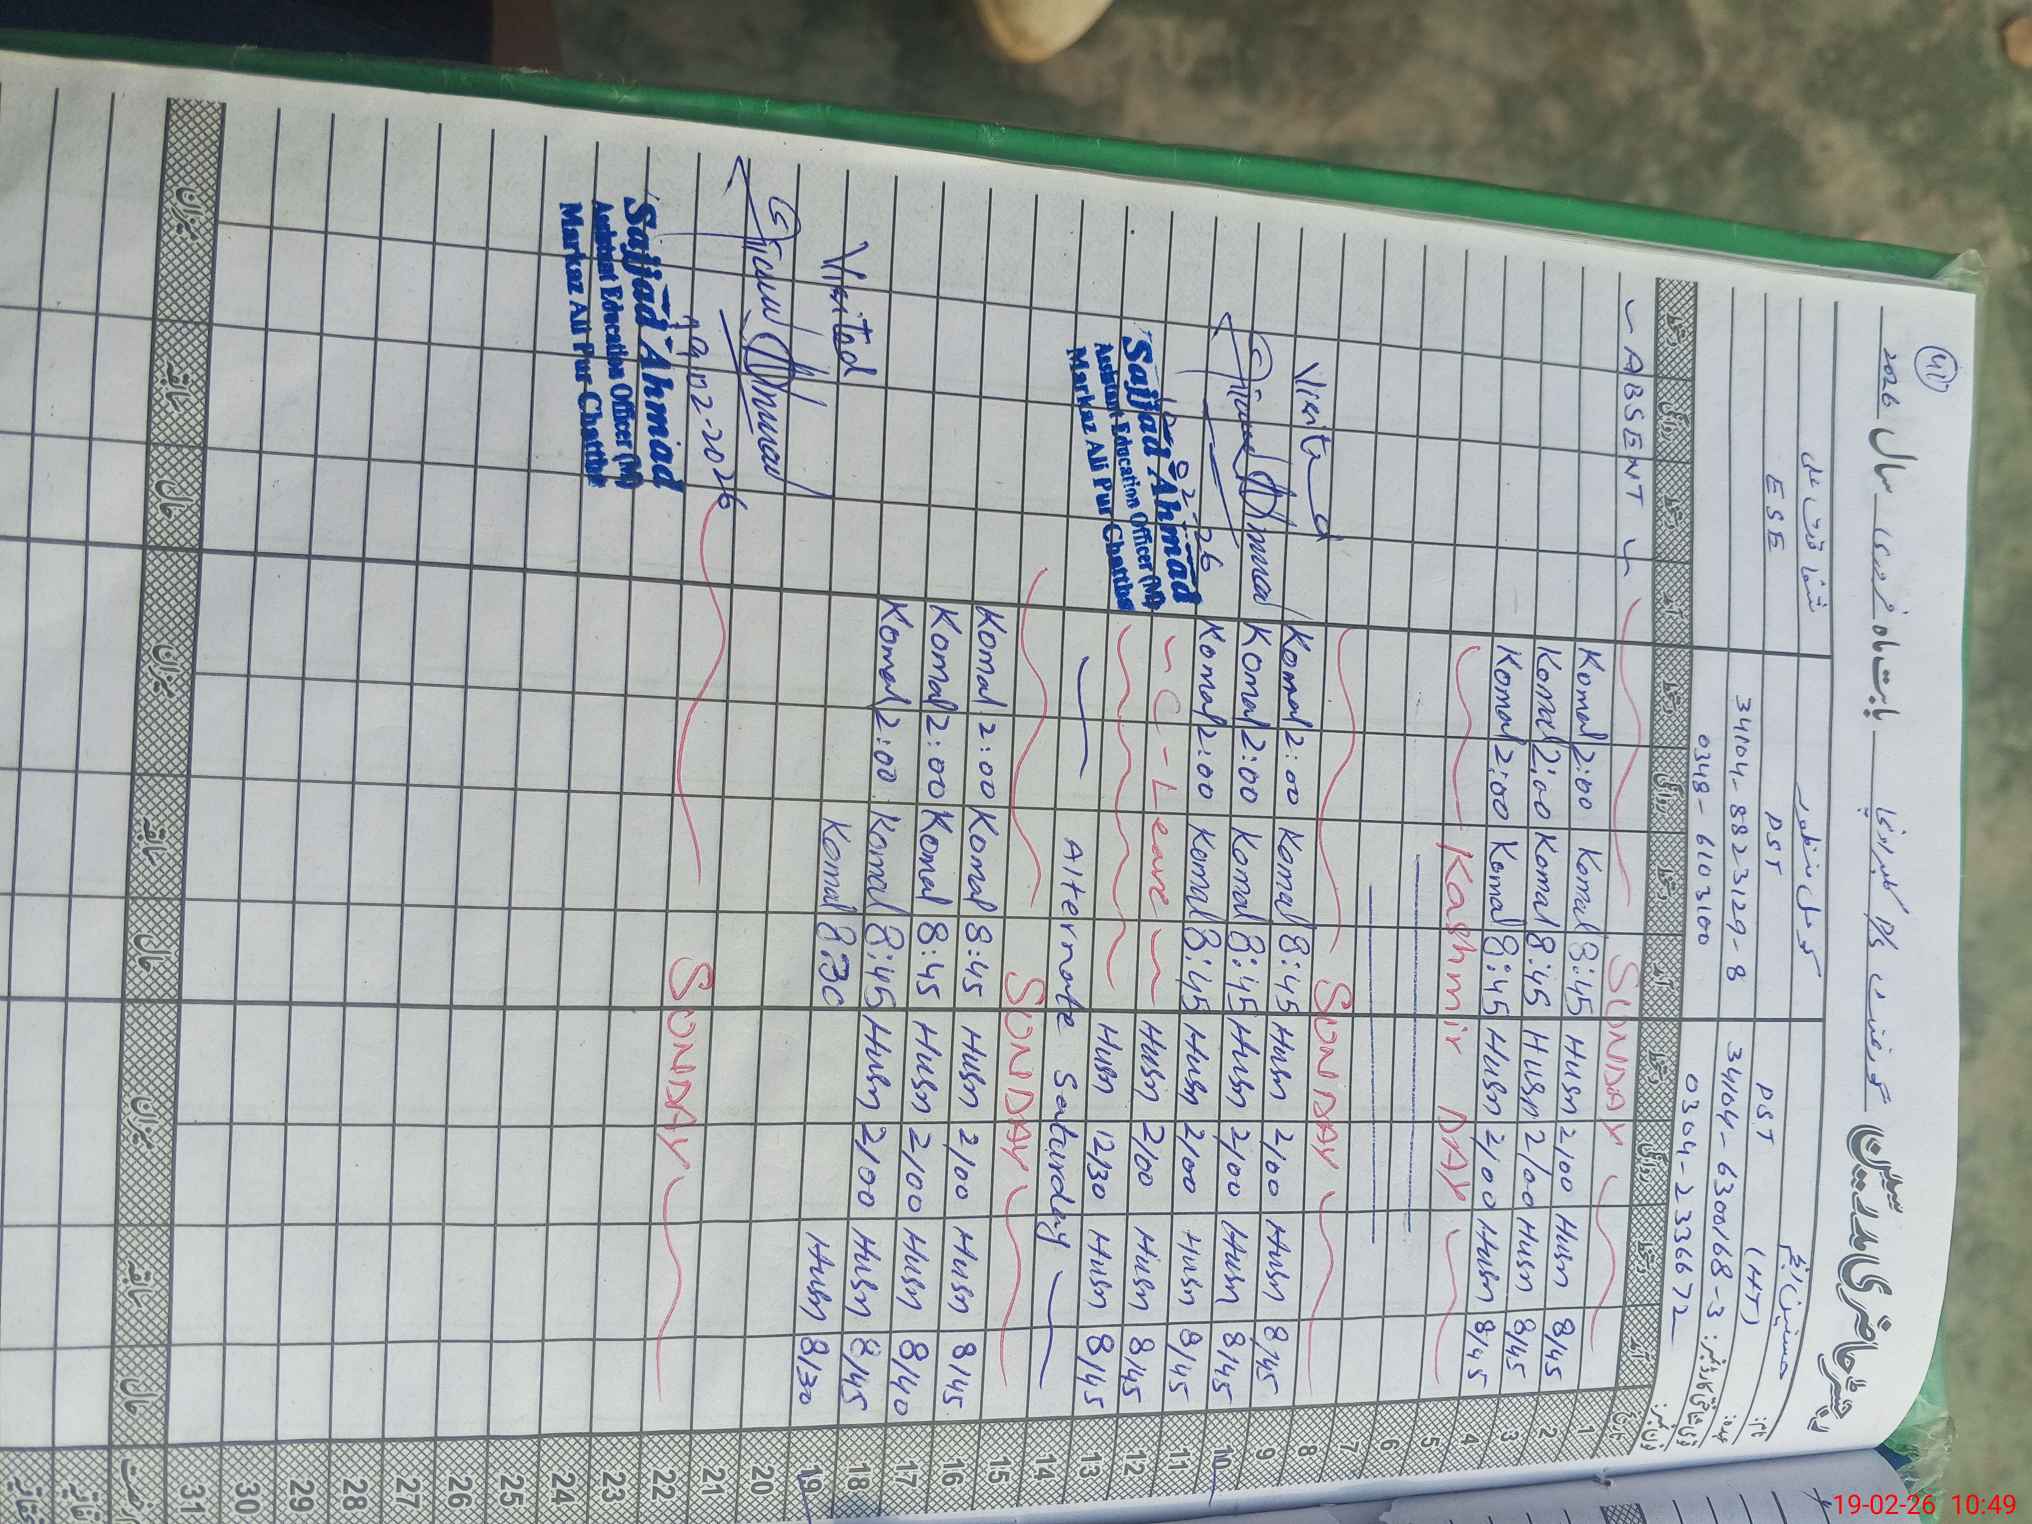 (41)
رجسٹر حاضری مدرسین
بابت ماہ فروری سال 2026
نام:
کومل منظور
عہدہ:
PST (HT)
PST
ESE
قومی شناختی کارڈ نمبر:
34104-6300168-3
34104-8823129-8
فون نمبر:
0304-2336672
0348-6103100
تاریخ آمد دستخط روانگی دستخط آمد دستخط روانگی دستخط آمد دستخط روانگی دستخط
1 SUNDAY ABSENT
2 8/45 Husn 2/00 Husn 8:45 Komal 2:00 Komal
3 8/45 Husn 2/00 Husn 8:45 Komal 2:00 Komal
4 8/45 Husn 2/00 Husn 8:45 Komal 2:00 Komal
5 Kashmir DAY
6
7
8 SUNDAY
9 8/45 Husn 2/00 Husn 8:45 Komal 2:00 Komal
10 8/45 Husn 2/00 Husn 8:45 Komal 2:00 Komal
11 8/45 Husn 2/00 Husn 8:45 Komal 2:00 Komal
12 8/45 Husn 2/00 Husn C-Leave
13 8/45 Husn 12/30 Husn
14 Alternate Saturday
15 SUNDAY
16 8/45 Husn 2/00 Husn 8:45 Komal 2:00 Komal
17 8/40 Husn 2/00 Husn 8:45 Komal 2:00 Komal
18 8/45 Husn 2/00 Husn 8:45 Komal 2:00 Komal
19 8/30 Husn 8:30 Komal
20
21
22 SUNDAY
23
24
25
26
27
28
29
30
31
Visited
Sajjad Ahmad
Assistant Education Officer (M)
Markaz Ali Pur Chattha
Visited
19-02-2026
Sajjad Ahmad
Assistant Education Officer (M)
Markaz Ali Pur Chattha
حال سابقہ میزان حال سابقہ میزان حال سابقہ میزان
19-02-26 10:49